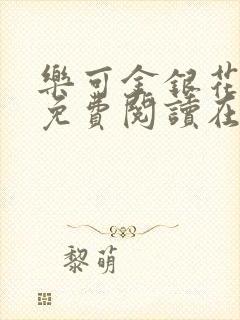 樂可金銀花
免費閱讀在
黎萌